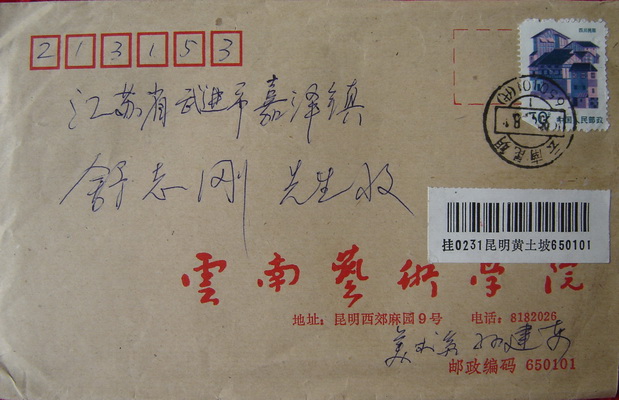 213153
四川民居
中国人民邮政
江苏省武进市嘉泽镇
650101(支)
云南昆明
舒志刚 先生收
挂0231昆明黄土坡650101
雲南藝術学院
地址：昆明西郊麻园9号 电话：8182026
美术系 孙建东
邮政编码 650101